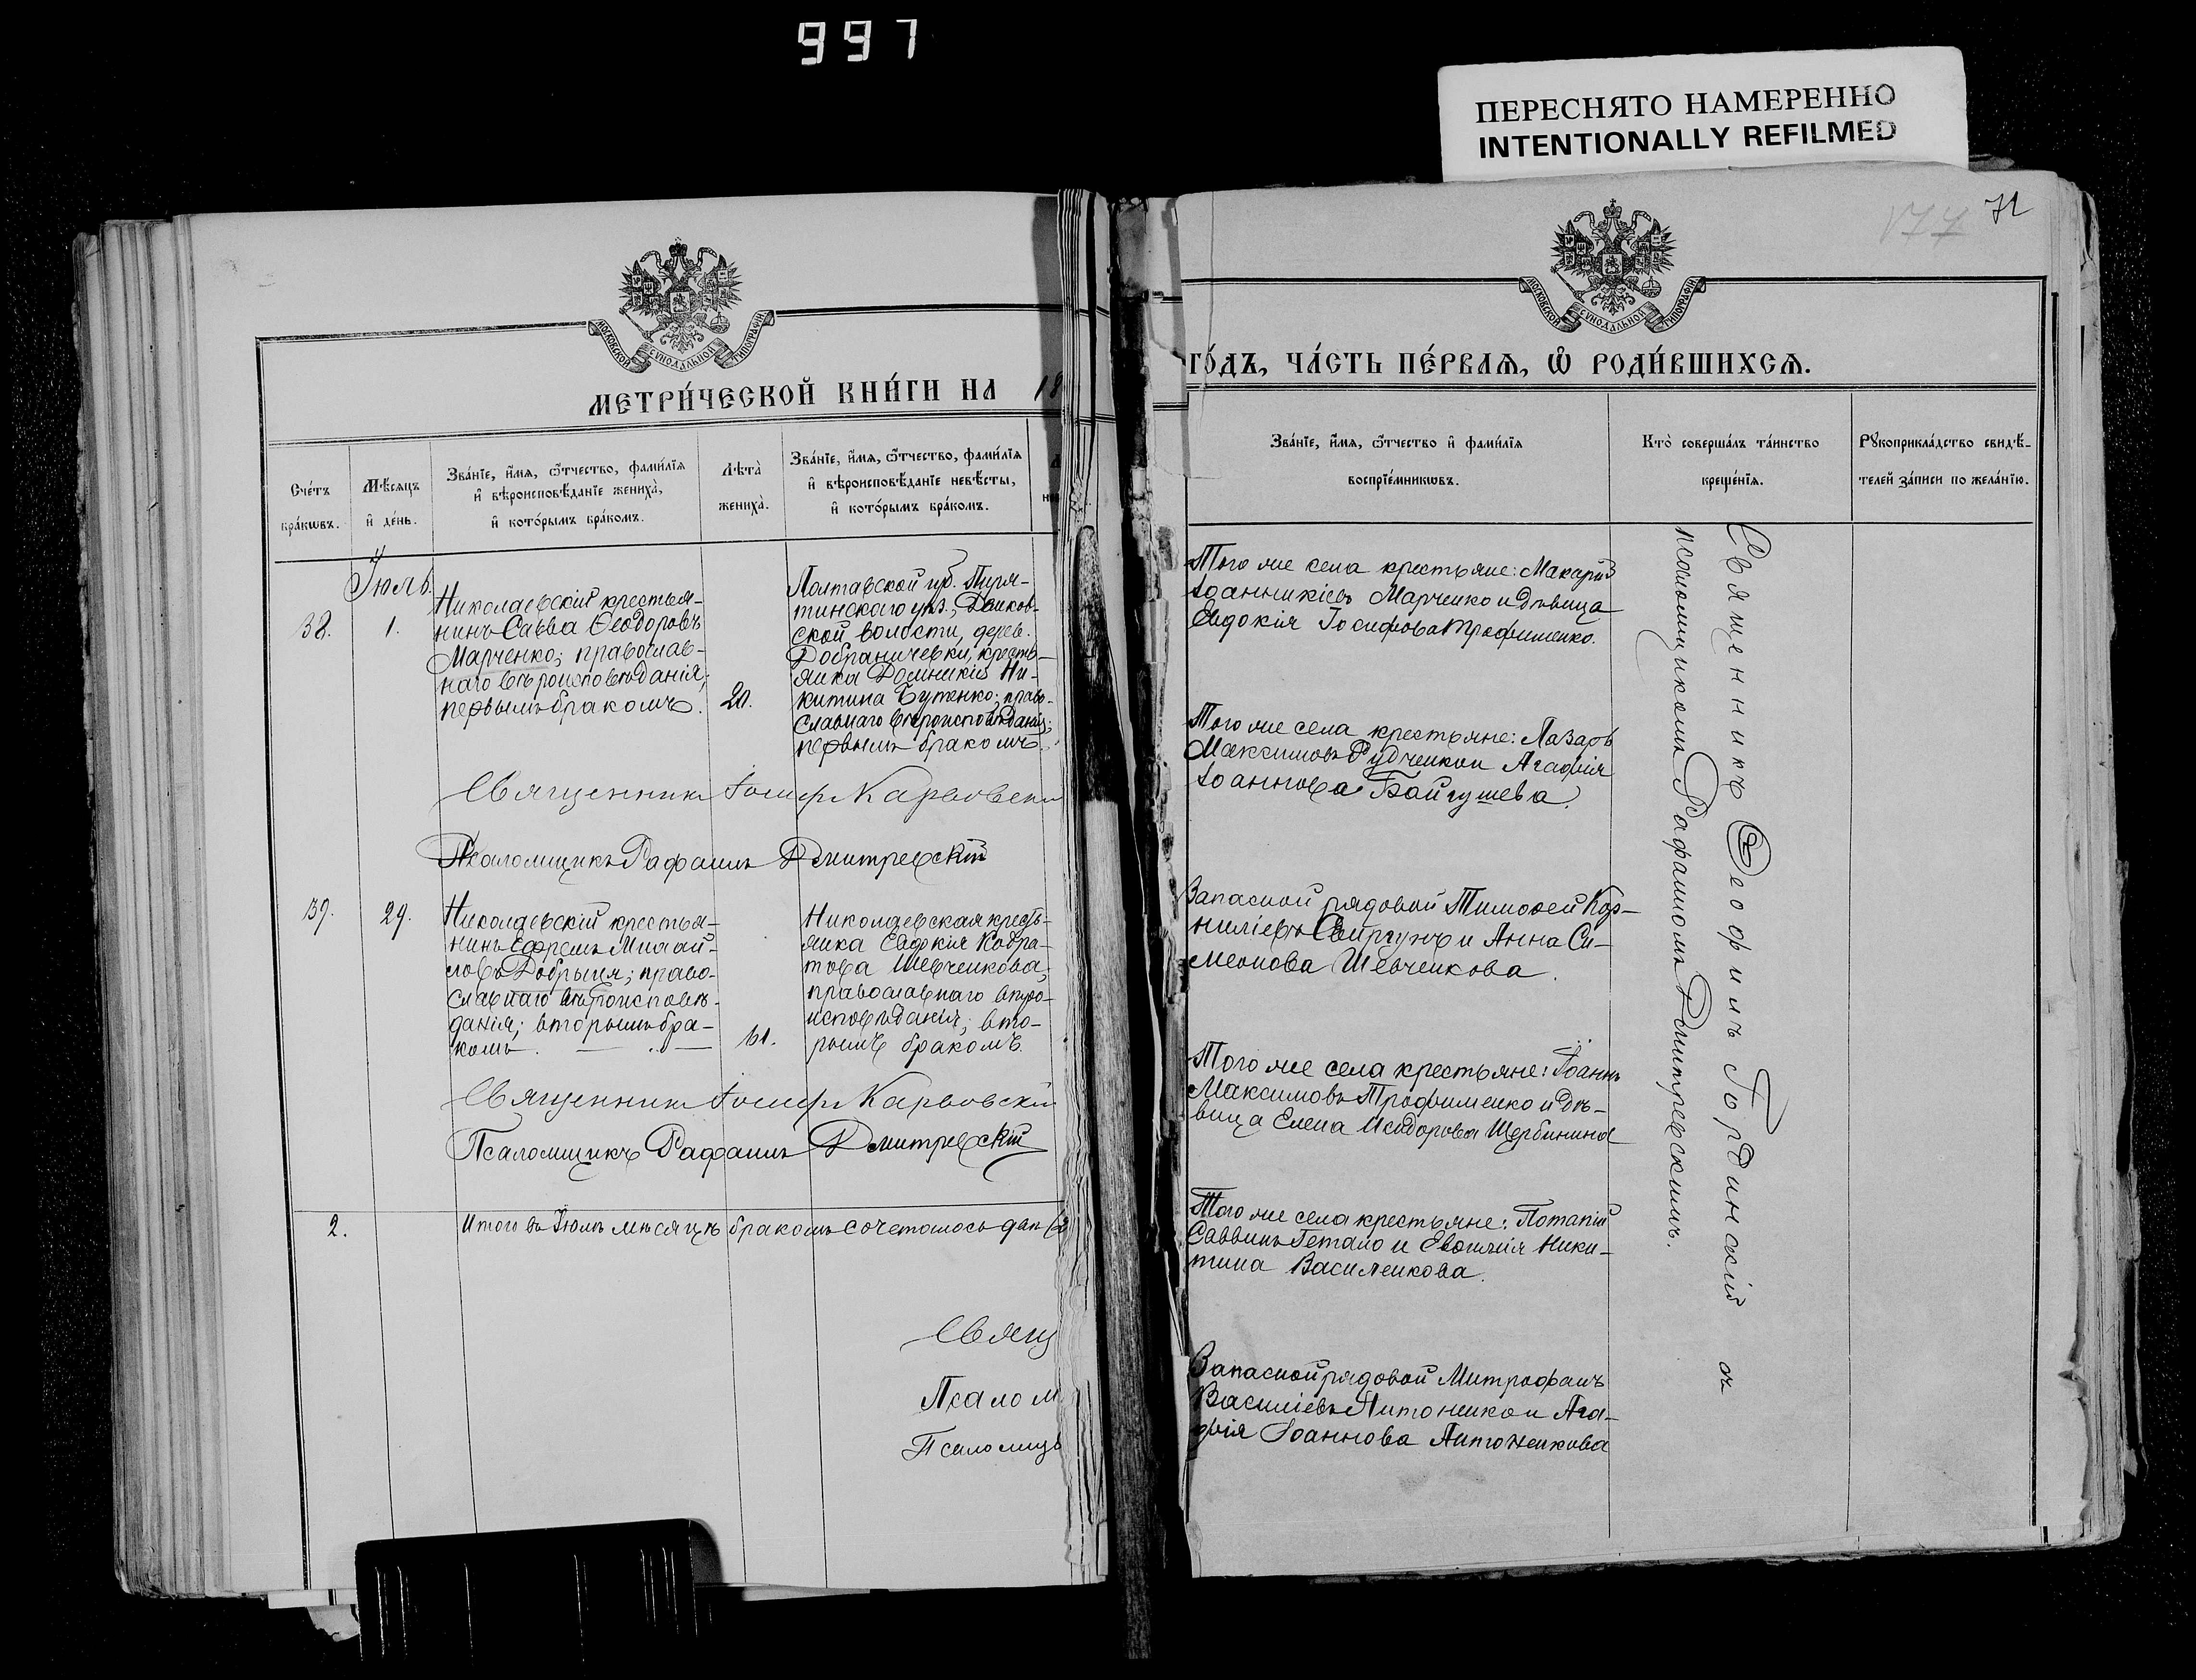 997
ПЕРЕСНЯТО НАМЕРЕННО
INTENTIONALLY REFILMED
МОСКОВСКОЙ СѴНОДАЛЬНОЙ ТИПОГРАФІИ
МЕТРИ́ЧЕСКОЙ КНИ́ГИ НА 18
Сче́тъ
бра́кωвъ.
Мѣ́сяцъ
и҆ де́нь.
Зва́нїе, и҆́мя, ѻ҆́тчество, фами́лїя
и҆ вѣроисповѣ́данїе жениха̀,
и҆ кото́рымъ бра́комъ.
Лѣта̀
жениха̀.
Зва́нїе, и҆́мя, ѻ҆́тчество, фами́лїя
и҆ вѣроисповѣ́данїе невѣ́сты,
и҆ кото́рымъ бра́комъ.
Іюль.
38.
1.
Николаевскій крестья-
нинъ Савва Ѳеодоровъ
Марченко; православ-
наго вѣроисповѣданія;
первымъ бракомъ.
20.
Полтавской губ. Пиря-
тинскаго уѣз.,
ской волости, дерев.
Добраничевки, кресть-
янка Домникія Ни-
китина Бутенко; право-
славнаго вѣроисповѣданія;
первымъ бракомъ.
Священникъ Іосифъ Карповскі
Псаломщикъ Рафаилъ Дмитревскій
39.
29.
Николаевскій крестья-
нинъ Ефремъ Михай-
ловъ Добрыня; право-
славнаго вѣроисповѣ-
данія; вторымъ бра-
комъ.
61.
Николаевская кресть-
янка Евдокія Кодра-
това Шевченкова;
православнаго вѣро-
исповѣданія; вто-
рымъ бракомъ.
Священникъ Іосифъ Карповскі
Псаломщикъ Рафаилъ Дмитревскій
2.
Итого въ Іюлѣ мѣсяцѣ бракомъ сочеталось два (2
Свящ
Псалом
Псаломщ
177
72
МОСКОВСКОЙ СѴНОДАЛЬНОЙ ТИПОГРАФІИ
ГО́ДЪ, ЧА́СТЬ ПЕ́РВАЯ, Ѡ҆ РОДИ́ВШИХСЯ.
Зва́нїе, и҆́мя, ѻ҆́тчество и҆ фами́лїя
воспрїе́мникωвъ.
Кто̀ соверша́лъ та́инство
креще́нїя.
Рꙋкоприкла́дство свидѣ́-
телей за́писи по жела́нїю.
Того же села крестьяне: Макарій
Іоанникіевъ Марченко и дѣвица
Евдокія Іосифова Трофименко.
Того же села крестьяне: Лазарь
Максимовъ Рудченко и Агафія
Іоаннова Байгушева.
Запасной рядовой Тимоѳей Кор-
ниліевъ Свиргунъ и Анна Си-
меонова Шевченкова.
Того же села крестьяне: Іоаннъ
Максимовъ Трофименко и дѣ-
вица Елена Исидорова Щербинина
Того же села крестьяне: Потапій
Саввинъ Гетало и Евфимія Ники-
тина Василенкова.
Запасной рядовой Митрофанъ
Василіевъ Антоненко и Ага-
фія Іоаннова Антоненкова
Священникъ Ѳеофилъ Гординскій съ
псаломщикомъ Рафаиломъ Дмитревскимъ.